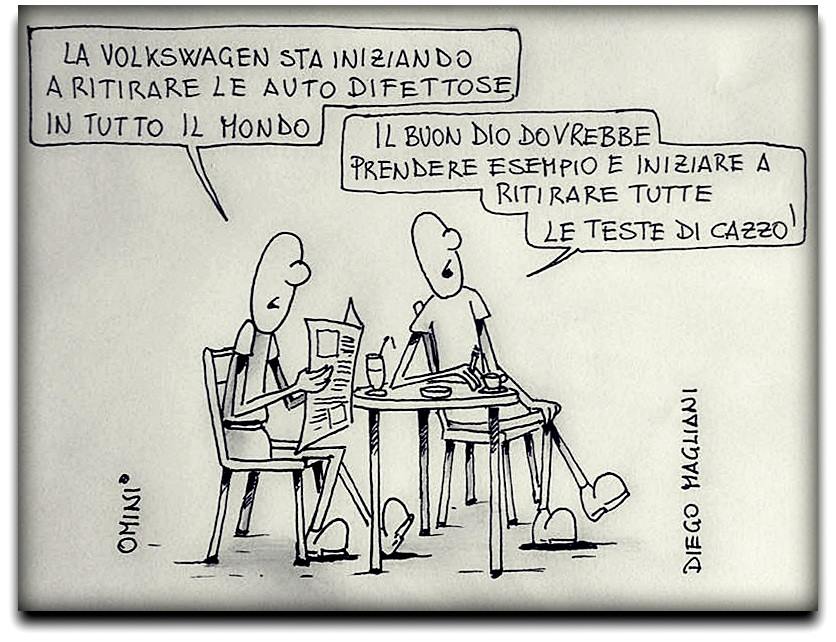 LA VOLKSWAGEN STA INIZIANDO
A RITIRARE LE AUTO DIFETTOSE
IN TUTTO IL MONDO
IL BUON DIO DOVREBBE
PRENDERE ESEMPIO E INIZIARE A
RITIRARE TUTTE
LE TESTE DI CAZZO!
OMINI®
DIEGO MAGLIANI